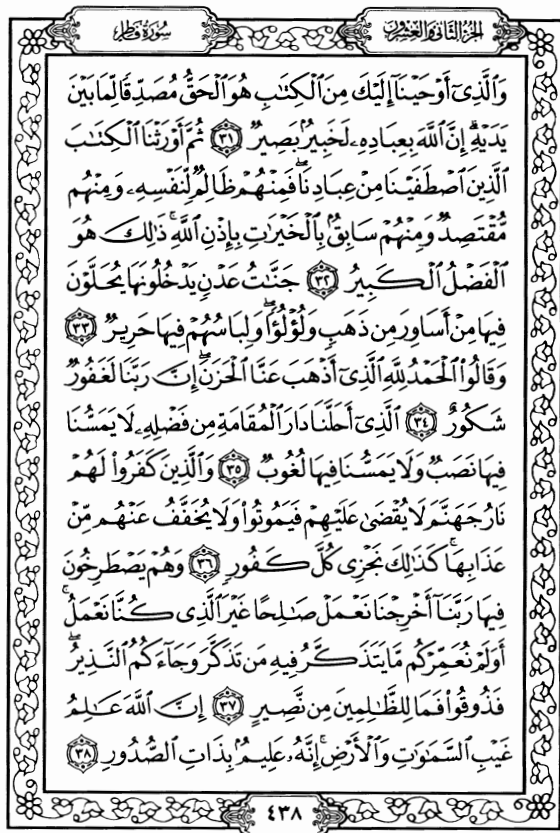 الجزء الثاني والعشرون
سورة فاطر
وَٱلَّذِىٓ أَوْحَيْنَآ إِلَيْكَ مِنَ ٱلْكِتَٰبِ هُوَ ٱلْحَقُّ مُصَدِّقًا لِّمَا بَيْنَ
يَدَيْهِ ۗ إِنَّ ٱللَّهَ بِعِبَادِهِۦ لَخَبِيرٌۢ بَصِيرٌ ٣١ ثُمَّ أَوْرَثْنَا ٱلْكِتَٰبَ
ٱلَّذِينَ ٱصْطَفَيْنَا مِنْ عِبَادِنَا ۖ فَمِنْهُمْ ظَالِمٌ لِّنَفْسِهِۦ وَمِنْهُم
مُّقْتَصِدٌ وَمِنْهُمْ سَابِقٌۢ بِٱلْخَيْرَٰتِ بِإِذْنِ ٱللَّهِ ۚ ذَٰلِكَ هُوَ
ٱلْفَضْلُ ٱلْكَبِيرُ ٣٢ جَنَّٰتُ عَدْنٍ يَدْخُلُونَهَا يُحَلَّوْنَ
فِيهَا مِنْ أَسَاوِرَ مِن ذَهَبٍ وَلُؤْلُؤًا ۖ وَلِبَاسُهُمْ فِيهَا حَرِيرٌ ٣٣
وَقَالُوا۟ ٱلْحَمْدُ لِلَّهِ ٱلَّذِىٓ أَذْهَبَ عَنَّا ٱلْحَزَنَ ۖ إِنَّ رَبَّنَا لَغَفُورٌ
شَكُورٌ ٣٤ ٱلَّذِىٓ أَحَلَّنَا دَارَ ٱلْمُقَامَةِ مِن فَضْلِهِۦ لَا يَمَسُّنَا
فِيهَا نَصَبٌ وَلَا يَمَسُّنَا فِيهَا لُغُوبٌ ٣٥ وَٱلَّذِينَ كَفَرُوا۟ لَهُمْ
نَارُ جَهَنَّمَ لَا يُقْضَىٰ عَلَيْهِمْ فَيَمُوتُوا۟ وَلَا يُخَفَّفُ عَنْهُم مِّنْ
عَذَابِهَا ۚ كَذَٰلِكَ نَجْزِى كُلَّ كَفُورٍ ٣٦ وَهُمْ يَصْطَرِخُونَ
فِيهَا رَبَّنَآ أَخْرِجْنَا نَعْمَلْ صَٰلِحًا غَيْرَ ٱلَّذِى كُنَّا نَعْمَلُ ۚ
أَوَلَمْ نُعَمِّرْكُم مَّا يَتَذَكَّرُ فِيهِ مَن تَذَكَّرَ وَجَآءَكُمُ ٱلنَّذِيرُ ۖ
فَذُوقُوا۟ فَمَا لِلظَّٰلِمِينَ مِن نَّصِيرٍ ٣٧ إِنَّ ٱللَّهَ عَٰلِمُ
غَيْبِ ٱلسَّمَٰوَٰتِ وَٱلْأَرْضِ ۚ إِنَّهُۥ عَلِيمٌۢ بِذَاتِ ٱلصُّدُورِ ٣٨
٤٣٨